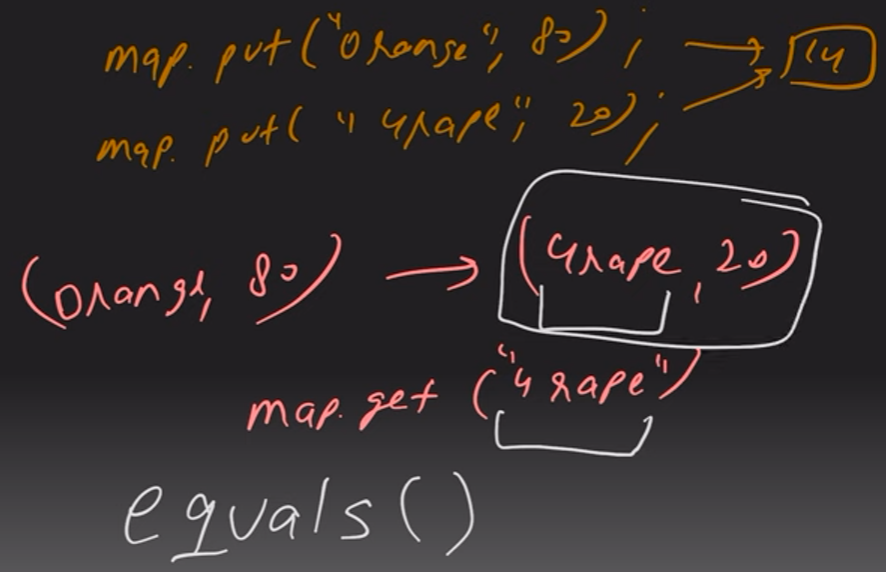 map.put("Orange", 80); → 14
map.put("Grape", 20);
(Orange, 80) → (Grape, 20)
map.get("Grape")
equals()